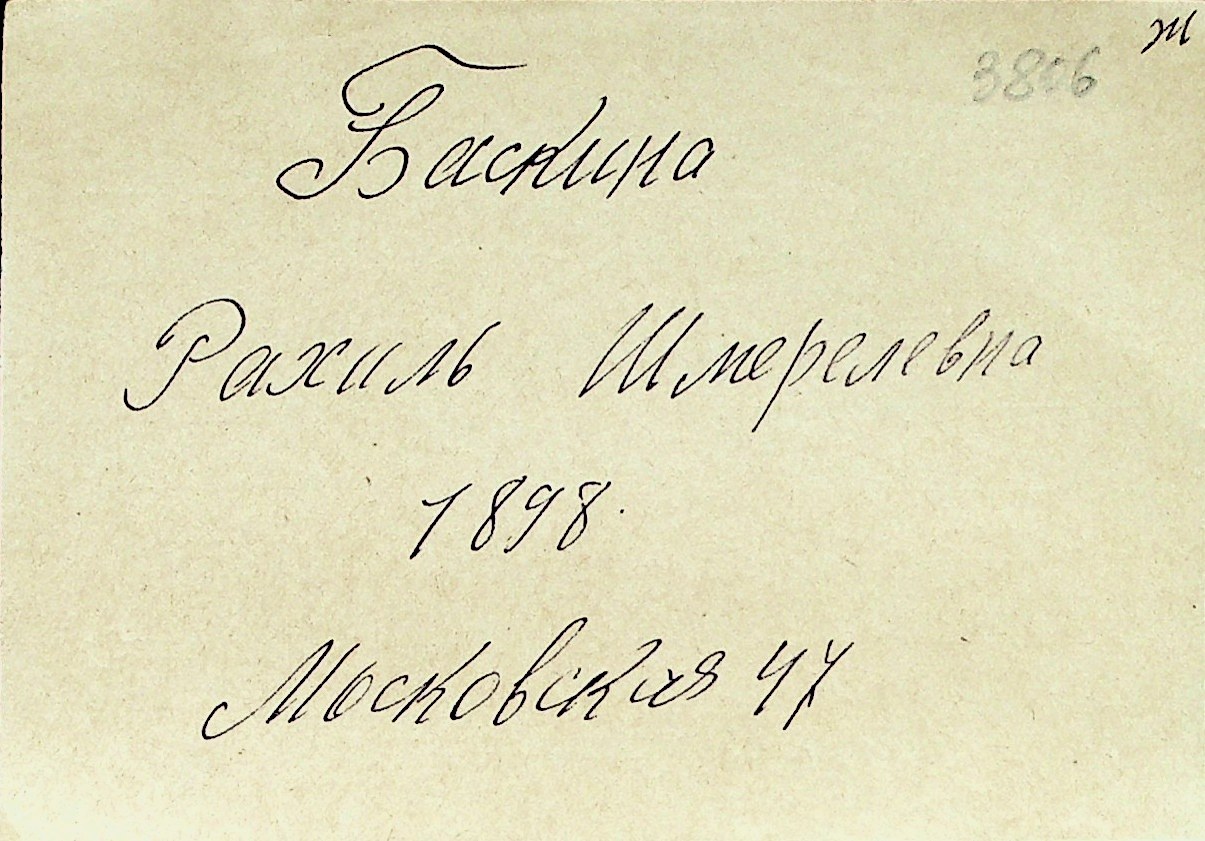 ж
3806
Баскина
Рахиль Шмерелевна
1898.
Московская 47